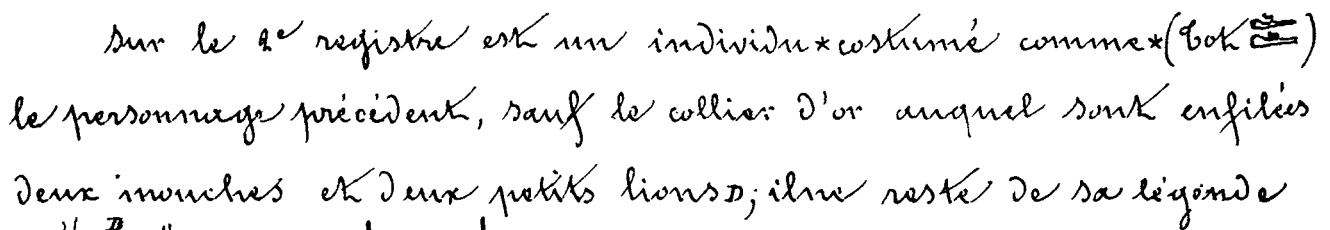 sur le 2e registre est un individu*costumé comme*(Cot
le personnage précédent, sauf le collier d'or auquel sont enfilées
deux mouches et deux petits lions; il ne reste de sa légende